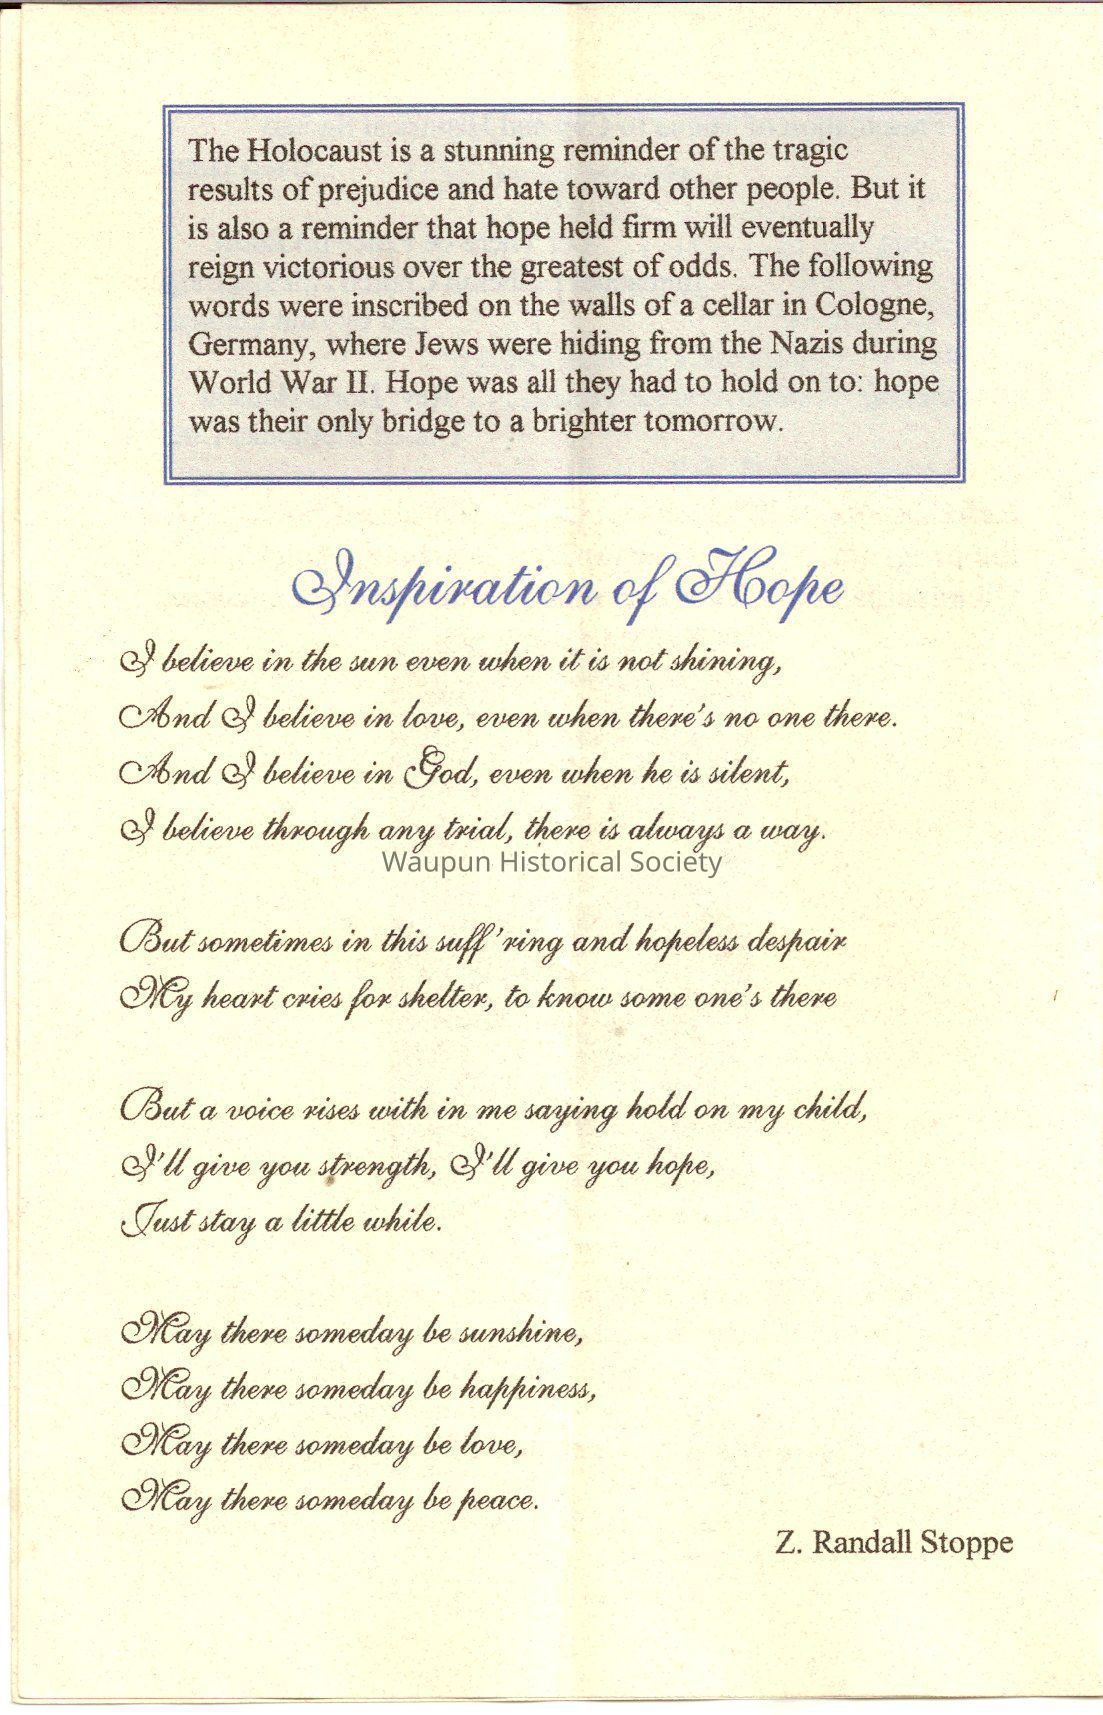 The Holocaust is a stunning reminder of the tragic
results of prejudice and hate toward other people. But it
is also a reminder that hope held firm will eventually
reign victorious over the greatest of odds. The following
words were inscribed on the walls of a cellar in Cologne,
Germany, where Jews were hiding from the Nazis during
World War II. Hope was all they had to hold on to: hope
was their only bridge to a brighter tomorrow.
Inspiration of Hope
I believe in the sun even when it is not shining,
And I believe in love, even when there's no one there.
And I believe in God, even when he is silent,
I believe through any trial, there is always a way.
Waupun Historical Society
But sometimes in this suff'ring and hopeless despair
My heart cries for shelter, to know some one's there
But a voice rises with in me saying hold on my child,
I'll give you strength, I'll give you hope,
Just stay a little while.
May there someday be sunshine,
May there someday be happiness,
May there someday be love,
May there someday be peace.
Z. Randall Stoppe